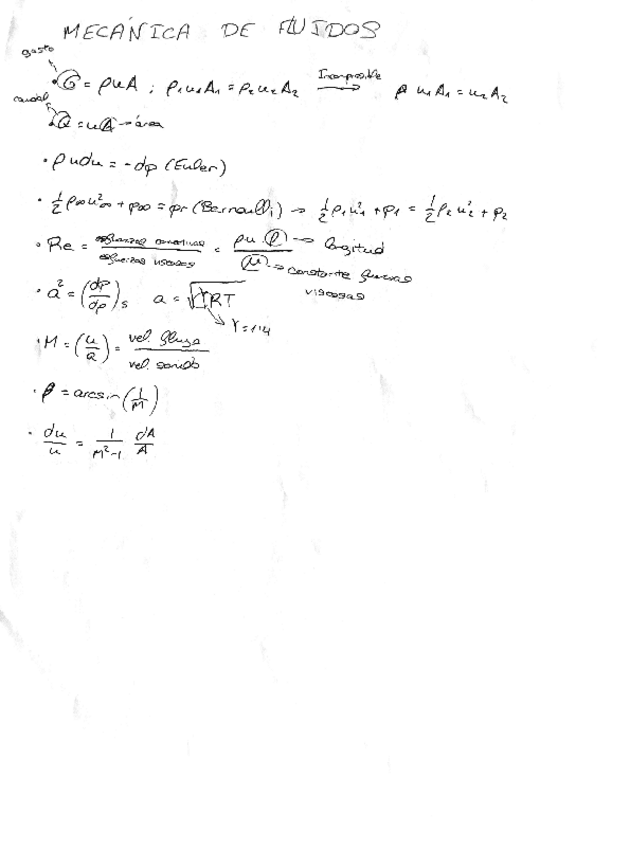 MECÁNICA DE FLUIDOS
gasto
G = ρuA ; ρ₁u₁A₁ = ρ₂u₂A₂ Incompresible → u₁A₁ = u₂A₂
caudal
Q = uA → área
• ρudu = -dp (Euler)
• ½ρ∞u²∞ + p∞ = pr (Bernoulli) → ½ρ₁u₁² + p₁ = ½ρ₂u₂² + p₂
• Re = esfuerzos convectivos / esfuerzos viscosos = ρu·l / μ → longitud
→ constante fuerzas viscosas
• a² = (dp/dρ)s a = √γRT
γ = 1'4
• M = (u/a) = vel. flujo / vel. sonido
• β = arcsin(1/M)
• du/u = 1/(M²-1) dA/A